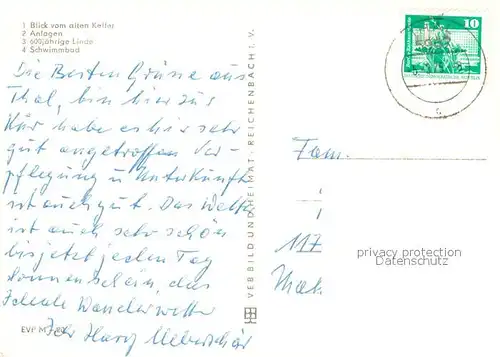 1 Blick vom alten Keller
2 Anlagen
3 600jährige Linde
4 Schwimmbad
Die Besten Grüsse aus
Thal, bin hier zur
Kur habe es hier sehr
gut angetroffen Ver-
pflegung u Unterkunft
ist auch gut. Das Wetter
ist auch sehr schön
bis jetzt jeden Tag
Sonnenschein, das
Ideale Wanderwetter
Harry
VEB BILD UND HEIMAT · REICHENBACH I. V.
10
Fam.
117
privacy protection
Datenschutz